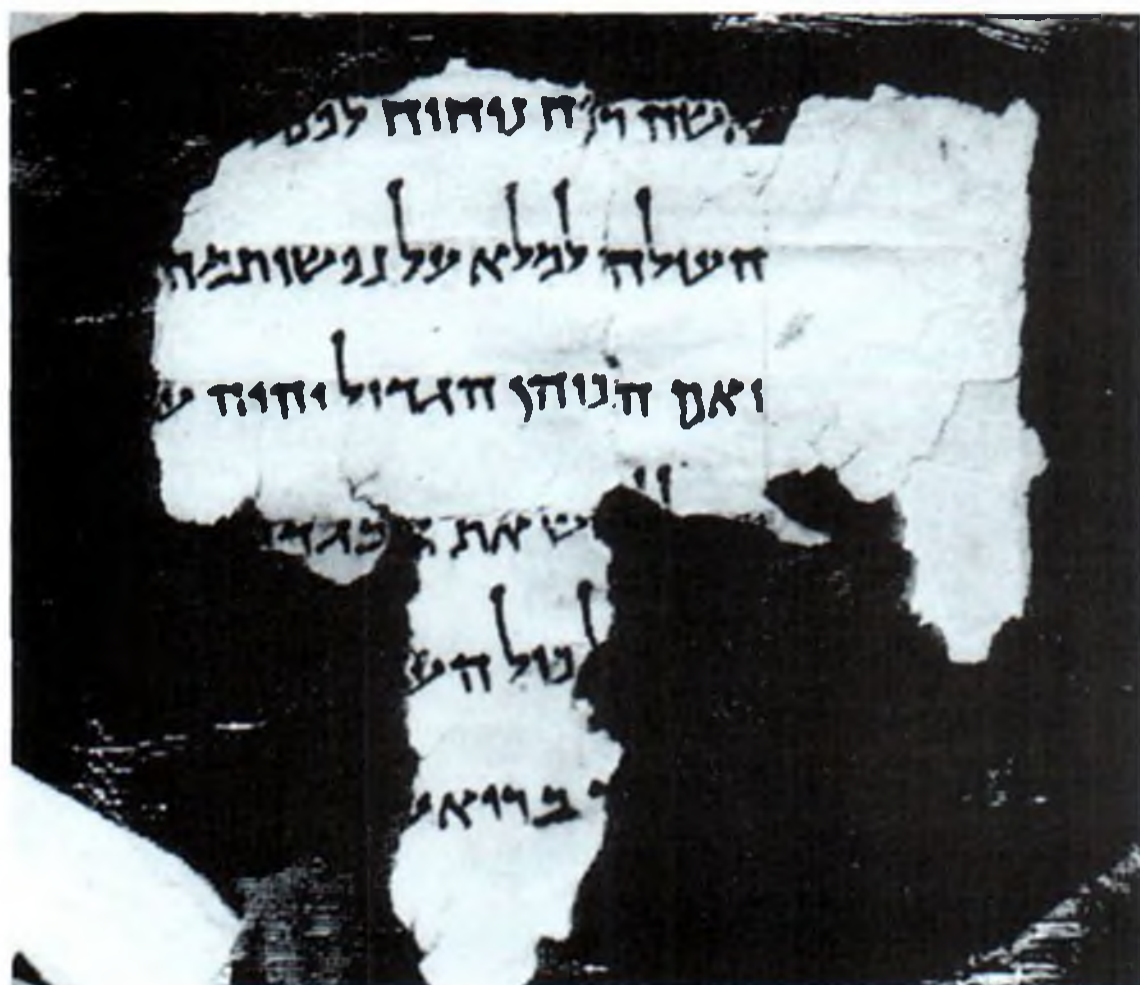 אשה ריח ניחוח לפנ
העולה למלא על נפשותמה
ואם הכוהן הגדול יהיה ע
ש את הבגדי
ל כול הע
ברואש